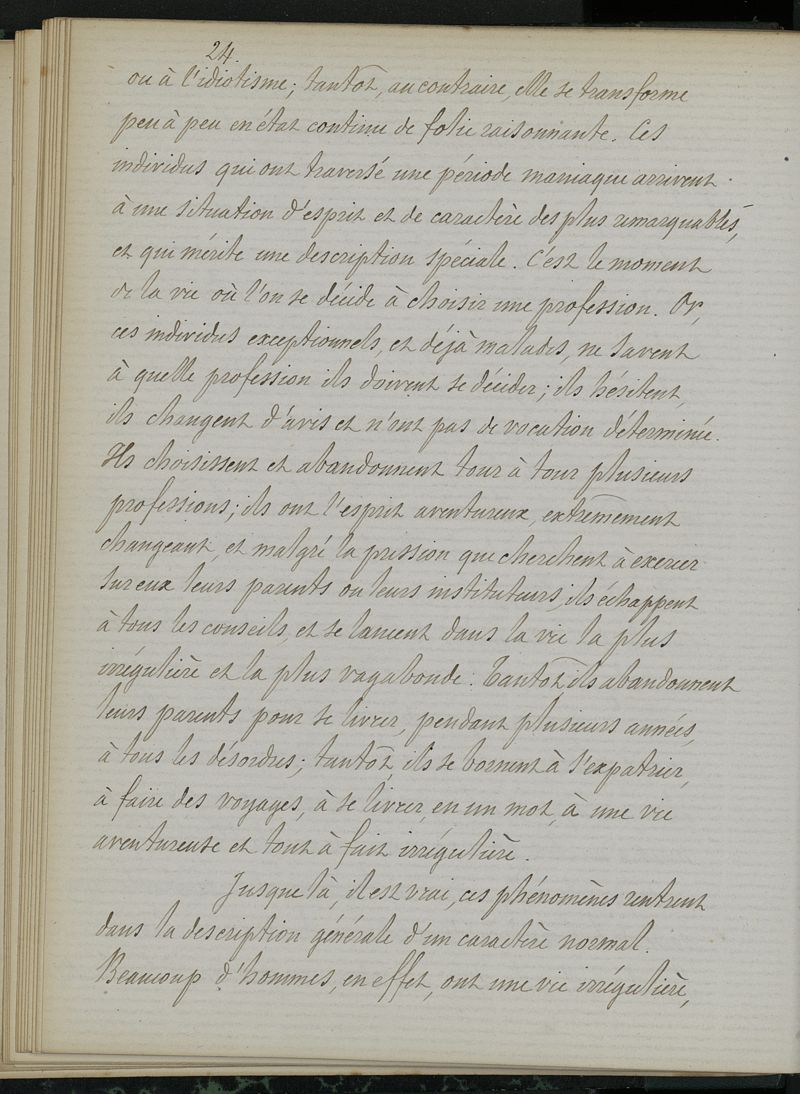 24.
ou à l'idiotisme; tantôt, au contraire, elle se transforme
peu à peu en état continu de folie raisonnante. Ces
individus qui ont traversé une période maniaque arrivent
à une situation d'esprit et de caractère des plus remarquables,
et qui mérite une description spéciale. C'est le moment
de la vie où l'on se décide à choisir une profession. Or,
ces individus exceptionnels, et déjà malades, ne savent
à quelle profession ils doivent se décider; ils hésitent,
ils changent d'avis et n'ont pas de vocation déterminée.
Ils choisissent et abandonnent tour à tour plusieurs
professions; ils ont l'esprit aventureux, extrêmement
changeant, et malgré la pression que cherchent à exercer
sur eux leurs parents ou leurs instituteurs, ils échappent
à tous les conseils, et se lancent dans la vie la plus
irrégulière et la plus vagabonde. Tantôt ils abandonnent
leurs parents pour se livrer, pendant plusieurs années,
à tous les désordres; tantôt, ils se bornent à s'expatrier,
à faire des voyages, à se livrer, en un mot, à une vie
aventureuse et tout à fait irrégulière.
Jusque là, il est vrai, ces phénomènes rentrent
dans la description générale d'un caractère normal.
Beaucoup d'hommes, en effet, ont une vie irrégulière,